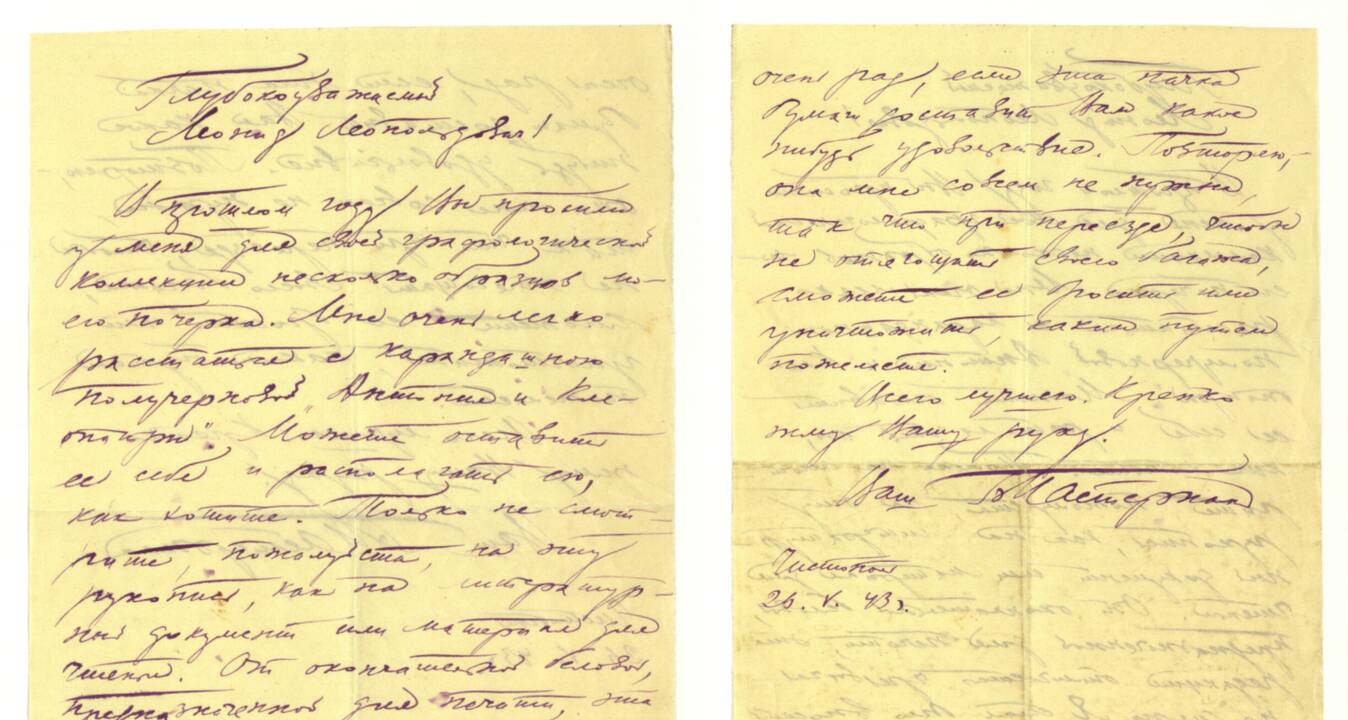 Глубокоуважаемый
Леонид Леопольдович!
В прошлом году Вы просили
у меня для своей графологической
коллекции несколько образцов мо-
его почерка. Мне очень легко
расстаться с карандашною
получерновой „Антония и Кле-
опатры". Можете оставить
ее себе и располагать ею,
как хотите. Только не смот-
рите, пожалуйста, на эту
рукопись, как на литератур-
ный документ или материал для
чтения. От окончательной беловой,
предназначенной для печати, эта
очень рад, если эта пачка
бумаги доставит Вам какое
нибудь удовольствие. Повторяю,
она мне совсем не нужна,
так что при переезде, чтобы
не отягощать своего багажа,
сможете ее бросить или
уничтожить, каким путем
пожелаете.
Всего лучшего. Крепко
жму Вашу руку.
Ваш БПастернак
Чистополь
26. V. 43 г.